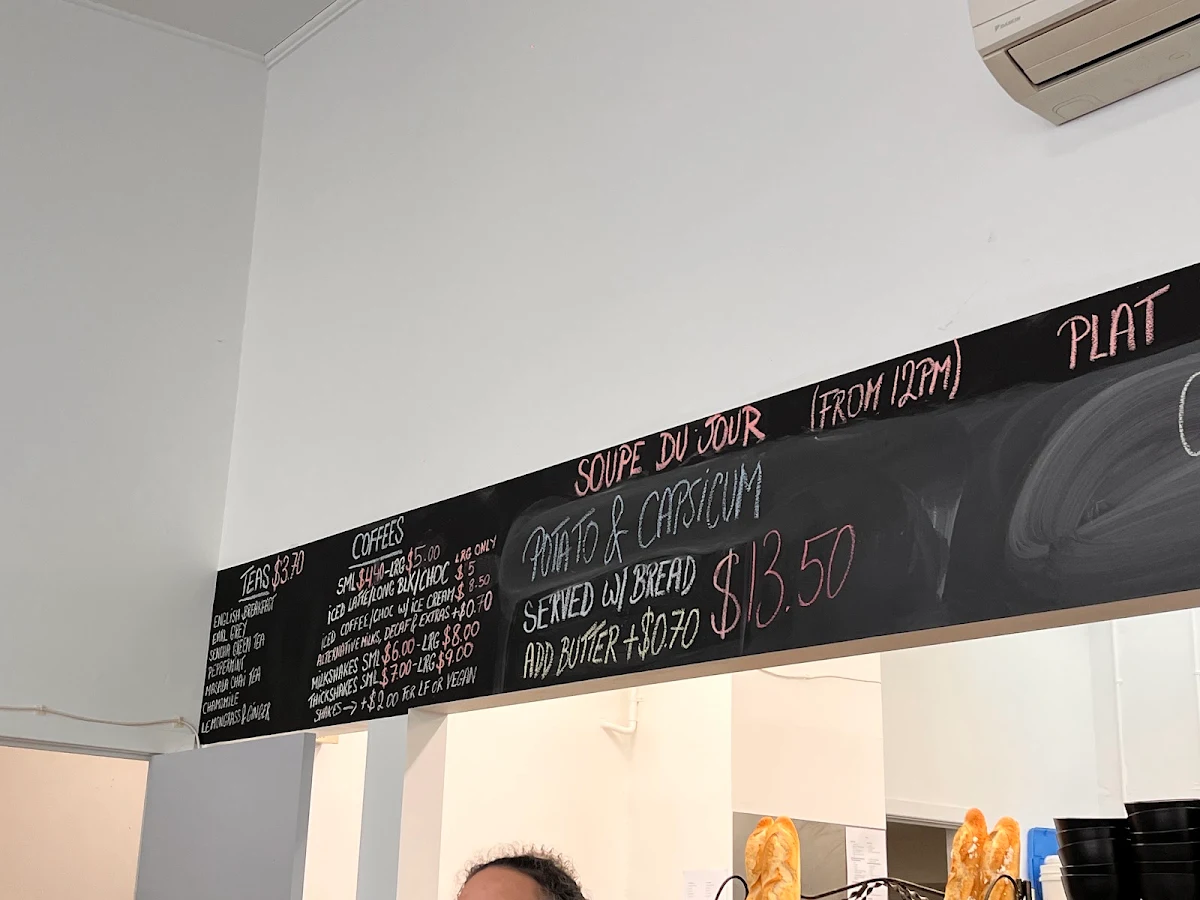 DAIKIN
TEAS $3.70
ENGLISH BREAKFAST
EARL GREY
SENCHA GREEN TEA
PEPPERMINT
MASALA CHAI TEA
CHAMOMILE
LEMONGRASS & GINGER
COFFEES
SML $4.40-LRG $5.00
LRG ONLY
ICED LATTE/LONG BLK/CHOC $5
ICED COFFEE/CHOC W/ ICE CREAM $8.50
ALTERNATIVE MILKS, DECAF & EXTRAS +$0.70
MILKSHAKES SML $6.00-LRG $8.00
THICKSHAKES SML $7.00-LRG $9.00
SHAKES → +$2.00 FOR LF OR VEGAN
SOUPE DU JOUR (FROM 12PM)
POTATO & CAPSICUM
SERVED W/ BREAD
ADD BUTTER +$0.70
$13.50
PLAT